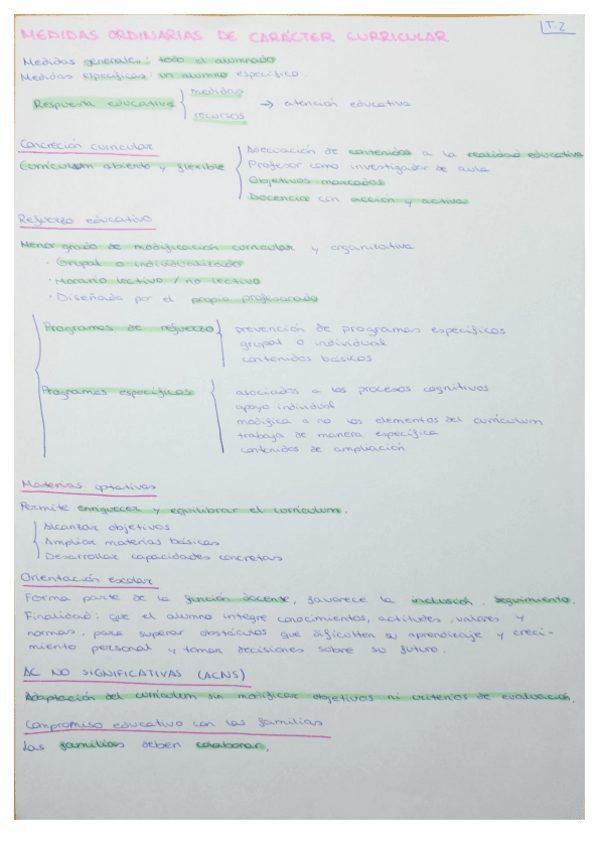 T.2
MEDIDAS ORDINARIAS DE CARÁCTER CURRICULAR
Medidas generales: todo el alumnado
Medidas específicas: un alumno específico.
Respuesta educativa
medidas
recursos
→ atención educativa
Concreción curricular
Currículum abierto y flexible
Adecuación de contenidos a la realidad educativa
Profesor como investigador de aula
Objetivos marcados
Docencia con acción y activa
Refuerzo educativo
Menor grado de modificación curricular y organizativa
· Grupal o individualizado
· Horario lectivo / no lectivo
· Diseñado por el propio profesorado
Programas de refuerzo
prevención de programas específicos
grupal o individual
contenidos básicos
Programas específicos
asociados a los procesos cognitivos
apoyo individual
modifica o no los elementos del currículum
trabaja de manera específica
contenidos de ampliación
Materias optativas
Permite enriquecer y equilibrar el currículum.
Alcanzar objetivos
Ampliar materias básicas
Desarrollar capacidades concretas
Orientación escolar
Forma parte de la función docente, favorece la inclusión. Seguimiento.
Finalidad: que el alumno integre conocimientos, actitudes, valores y
normas, para superar obstáculos que dificulten su aprendizaje y creci-
miento personal y tomar decisiones sobre su futuro.
AC NO SIGNIFICATIVAS (ACNS)
Adaptación del currículum sin modificar objetivos ni criterios de evaluación.
Compromiso educativo con las familias
Las familias deben colaborar.